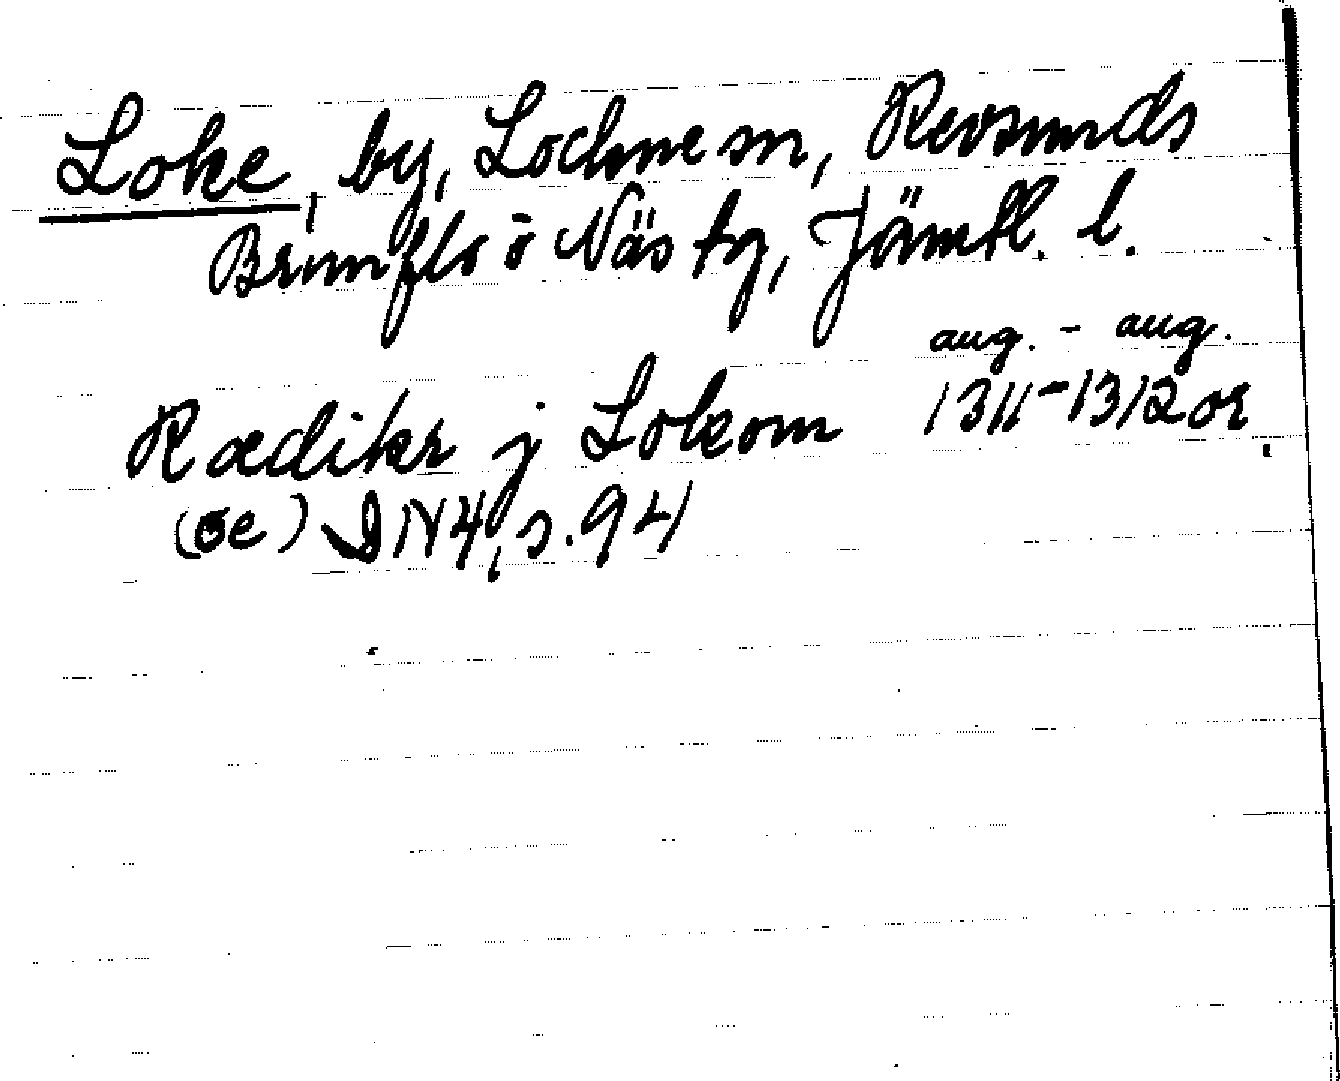 Loke, by, Lockne sn, Revsunds
Brunflo o Näs tg, Jämtl. l.
aug. - aug.
Rædikr j Lokom 1311-1312 or.
(se) DN 4, s. 94